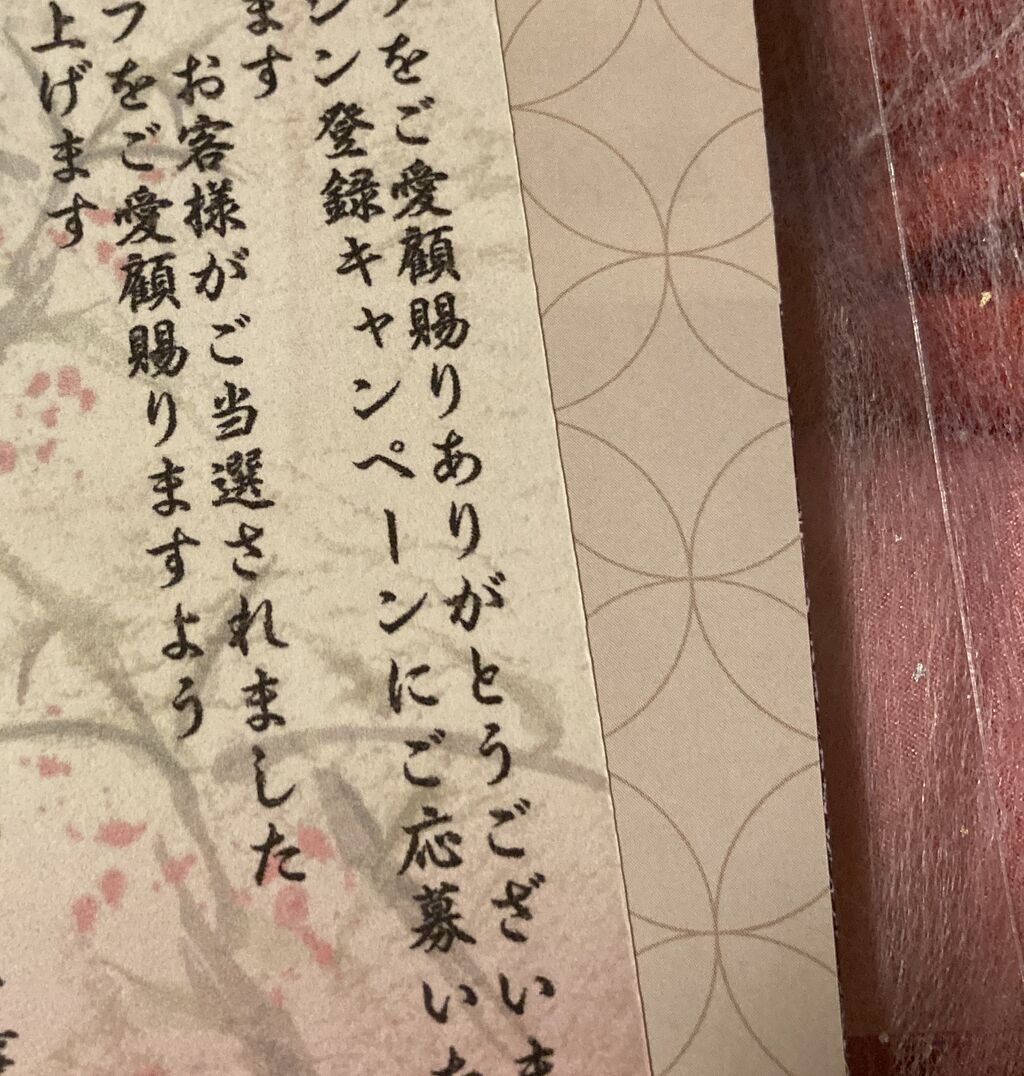 をご愛顧賜りありがとうございま
ン登録キャンペーンにご応募いた
ます
お客様がご当選されました
フをご愛顧賜りますよう
上げます